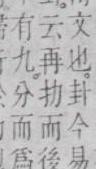 文也。卦今易
云再扐而後
有九。分而爲